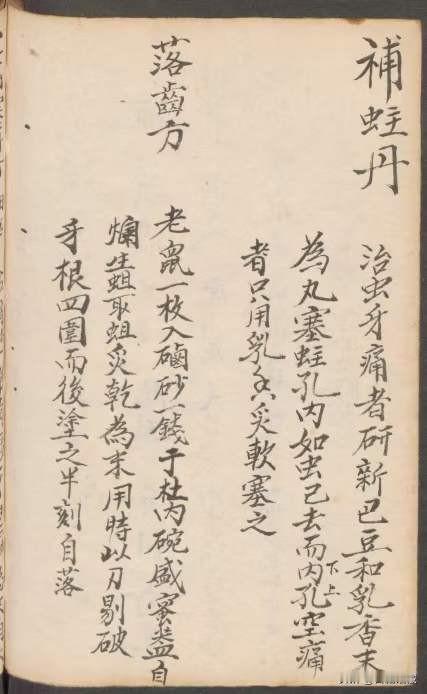 補蛀丹
治虫牙痛者研新巴豆和乳香末
為丸塞蛀孔内如虫已去而内孔空痛
下上
者只用乳香炙軟塞之
落齒方
老鼠一枚入硇砂一錢于肚内碗盛蜜盖自
爛生蛆取蛆炙乾為末用時以刀剔破
牙根四圍而後塗之半刻自落